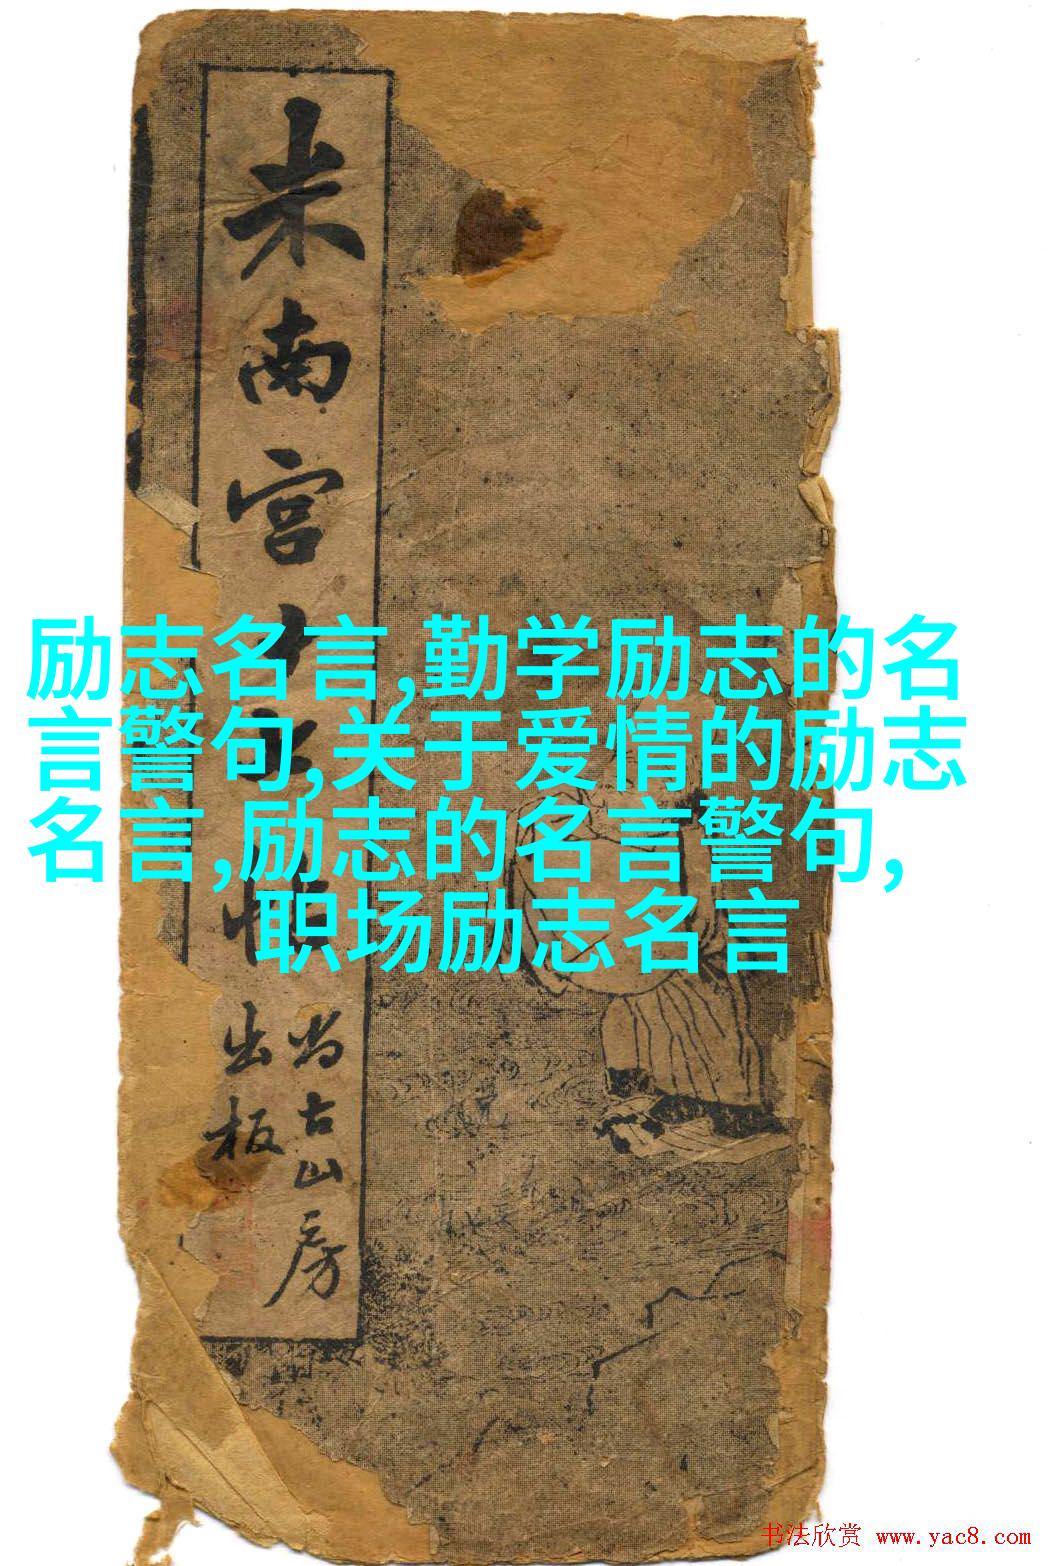 米南宫十七帖
尚古山房
出板
励志名言,勤学励志的名
言警句,关于爱情的励志
名言,励志的名言警句,
职场励志名言
书法欣赏 www.yac8.com